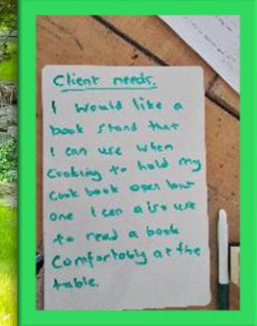 Client needs.
I would like a
book stand that
I can use when
cooking to hold my
cook book open but
one I can also use
to read a book
comfortably at the
table.